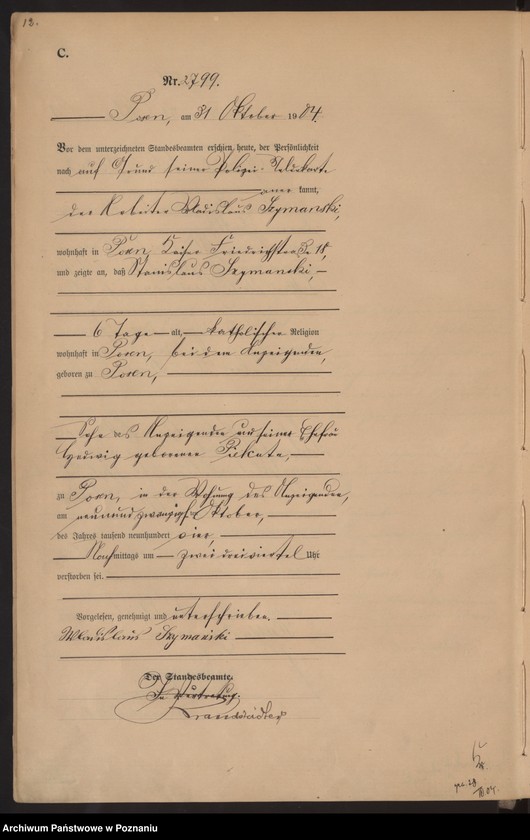 12.
C.
Nr. 2799.
Posen, am 31 Oktober 1904.
Vor dem unterzeichneten Standesbeamten erschien heute, der Persönlichkeit
nach auf Grund seiner Polizei-
kannt,
der Arbeiter Wladislaus Szymanski,
wohnhaft in Posen, Kaiser Friedrichstraße
und zeigte an, daß Stanislaus Szymanski,
6 Tage alt, katholischer Religion
wohnhaft in Posen, bei dem Anzeigenden,
geboren zu Posen,
Sohn des Anzeigenden und seiner Ehefrau
Hedwig geborenen
zu Posen, in der Wohnung des Anzeigenden,
am neunundzwanzigsten Oktober,
des Jahres tausend neunhundert vier,
Nachmittags um zwei dreiviertel Uhr
verstorben sei.
Vorgelesen, genehmigt und unterschrieben.
Wladislaus Szymański
Der Standesbeamte.
In Vertretung.
Archiwum Państwowe w Poznaniu